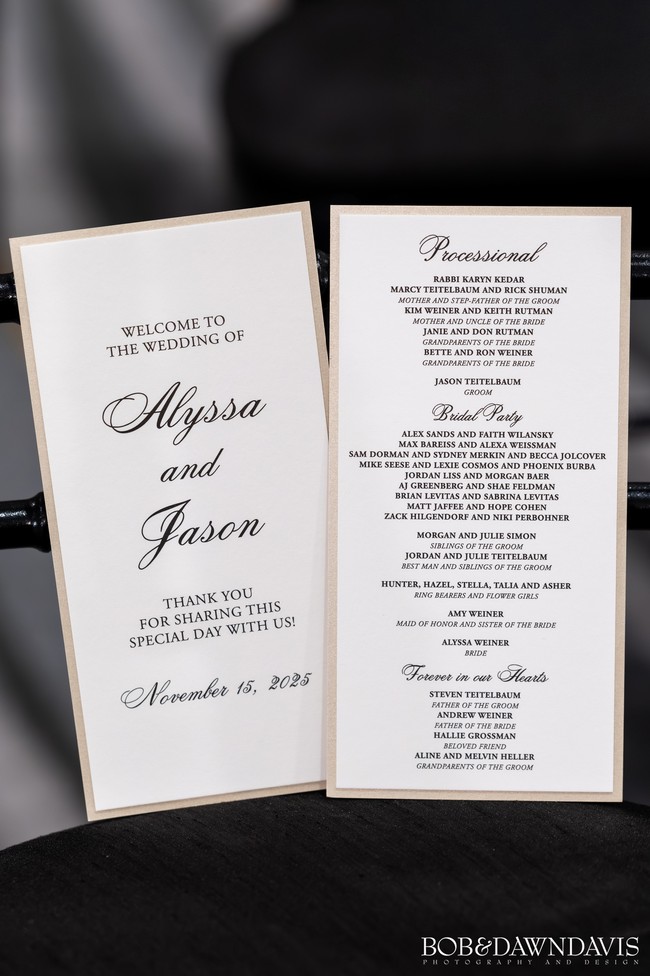 WELCOME TO
THE WEDDING OF
Alyssa
and
Jason
THANK YOU
FOR SHARING THIS
SPECIAL DAY WITH US!
November 15, 2025
Processional
RABBI KARYN KEDAR
MARCY TEITELBAUM AND RICK SHUMAN
MOTHER AND STEP-FATHER OF THE GROOM
KIM WEINER AND KEITH RUTMAN
MOTHER AND UNCLE OF THE BRIDE
JANIE AND DON RUTMAN
GRANDPARENTS OF THE BRIDE
BETTE AND RON WEINER
GRANDPARENTS OF THE BRIDE
JASON TEITELBAUM
GROOM
Bridal Party
ALEX SANDS AND FAITH WILANSKY
MAX BAREISS AND ALEXA WEISSMAN
SAM DORMAN AND SYDNEY MERKIN AND BECCA JOLCOVER
MIKE SEESE AND LEXIE COSMOS AND PHOENIX BURBA
JORDAN LISS AND MORGAN BAER
AJ GREENBERG AND SHAE FELDMAN
BRIAN LEVITAS AND SABRINA LEVITAS
MATT JAFFEE AND HOPE COHEN
ZACK HILGENDORF AND NIKI PERBOHNER
MORGAN AND JULIE SIMON
SIBLINGS OF THE GROOM
JORDAN AND JULIE TEITELBAUM
BEST MAN AND SIBLINGS OF THE GROOM
HUNTER, HAZEL, STELLA, TALIA AND ASHER
RING BEARERS AND FLOWER GIRLS
AMY WEINER
MAID OF HONOR AND SISTER OF THE BRIDE
ALYSSA WEINER
BRIDE
Forever in our Hearts
STEVEN TEITELBAUM
FATHER OF THE GROOM
ANDREW WEINER
FATHER OF THE BRIDE
HALLIE GROSSMAN
BELOVED FRIEND
ALINE AND MELVIN HELLER
GRANDPARENTS OF THE GROOM
BOB&DAWNDAVIS
PHOTOGRAPHY AND DESIGN